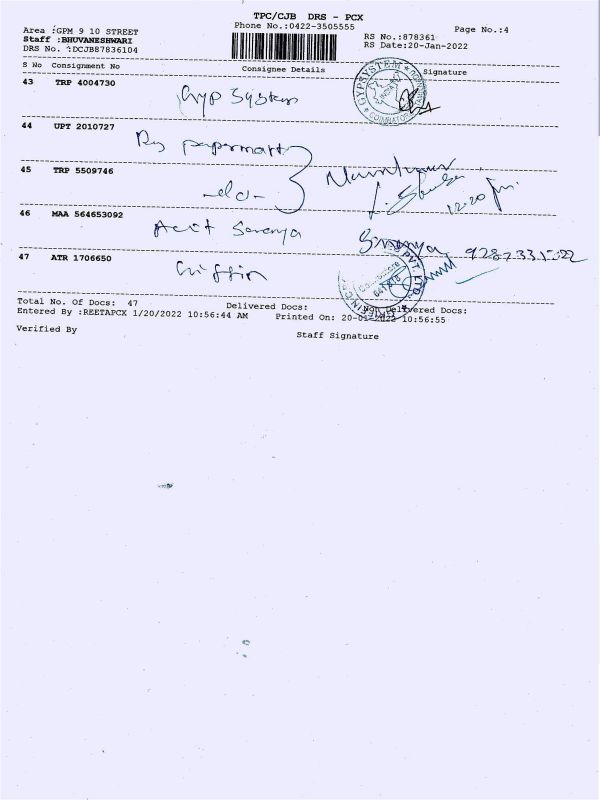 TPC/CJB DRS - PCX
Area :GPM 9 10 STREET Phone No.:0422-3505555 Page No.:4
Staff :BHUVANESHWARI RS No.:878361
DRS No. :DCJB87836104 RS Date:20-Jan-2022
S No Consignment No Consignee Details Signature
43 TRP 4004730
Gyp System
GYPSYSTEM
COIMBATORE
44 UPT 2010727
papermart
45 TRP 5509746
-do-
12.20 pm
46 MAA 564653092
Saranya Saranya
47 ATR 1706650
Griffin
PVT. LTD.
Total No. Of Docs: 47 Delivered Docs: Non Delivered Docs:
Entered By :REETAPCX 1/20/2022 10:56:44 AM Printed On: 20-01-2022 10:56:55
Verified By Staff Signature